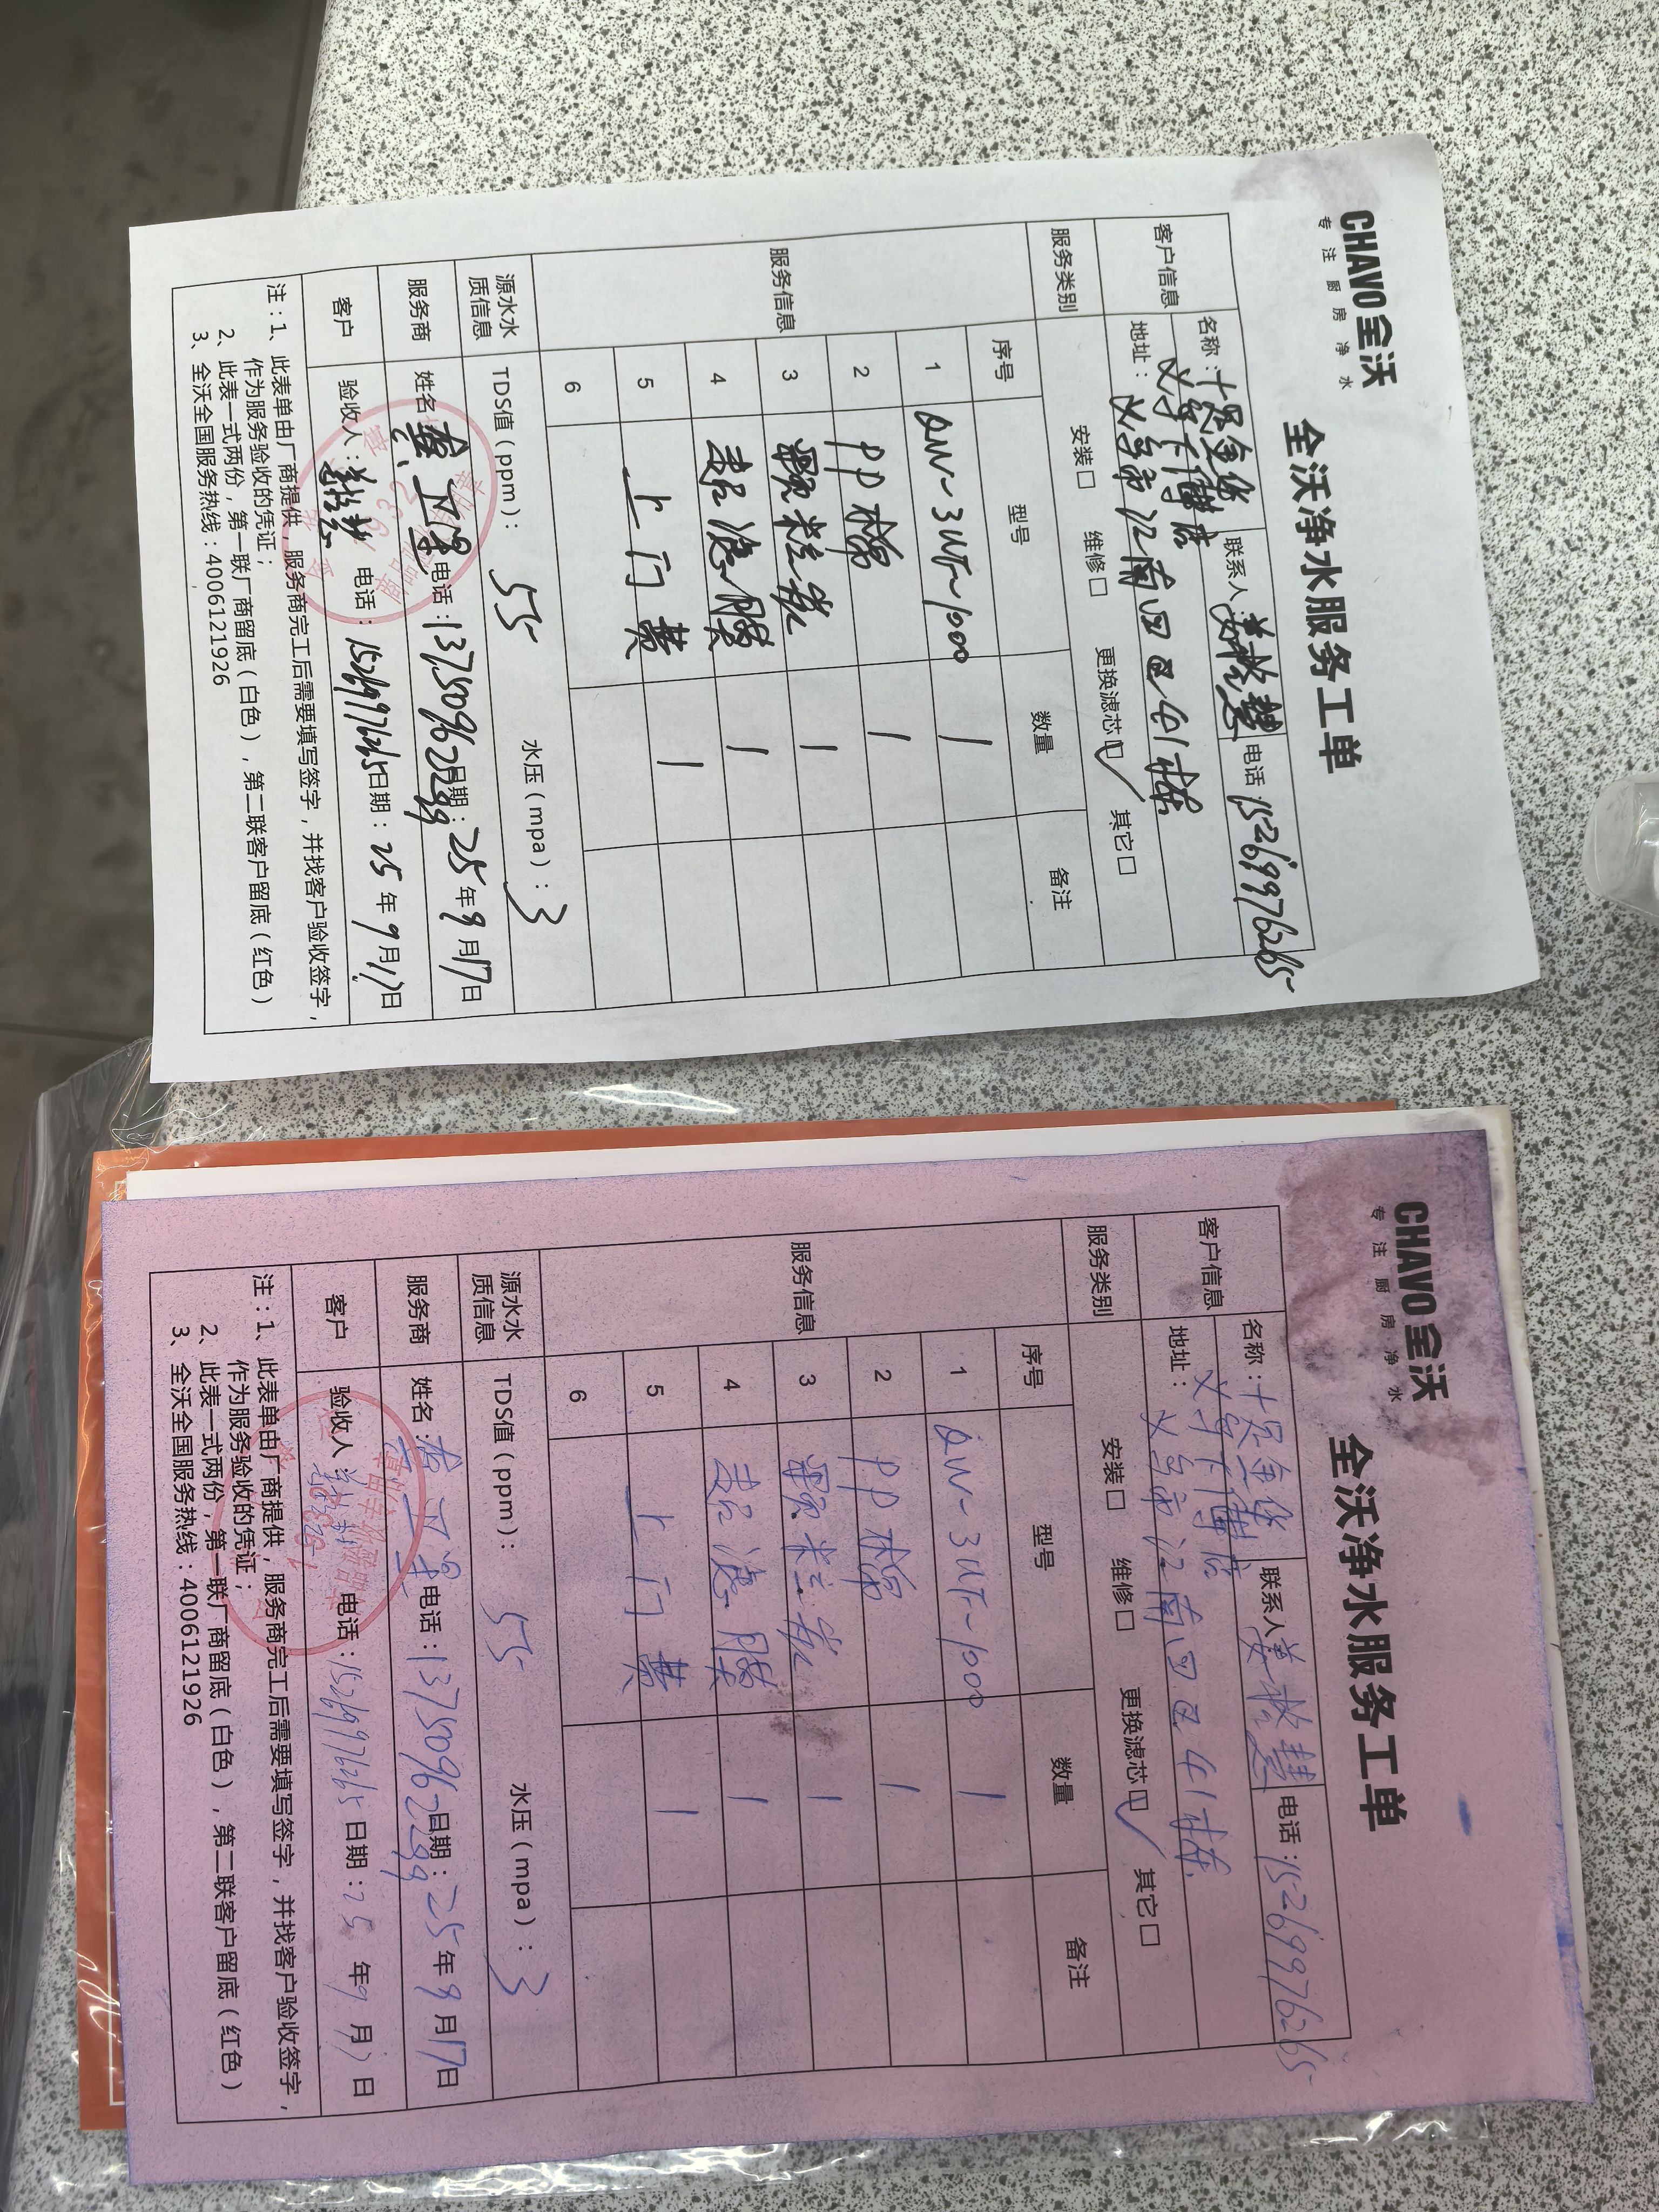 CHAVO 全沃
专注厨房净水
全沃净水服务工单
客户信息
名称：十足金华 联系人： 电话：15269976265
店
地址：义乌市江南四区41栋
服务类别 安装□ 维修□ 更换滤芯☑ 其它□
服务信息
序号 型号 数量 备注
1 QW-3UF-1000 1
2 PP棉 1
3 颗粒炭 1
4 超滤膜 1
5 上门费 1
6
源水水质信息 TDS值（ppm）：55 水压（mpa）：3
服务商 姓名：黄卫 电话：13750962299 日期：25年9月17日
客户 验收人： 电话：15269976265 日期：25年9月17日
注：1、此表单由厂商提供，服务商完工后需要填写签字，并找客户验收签字，
作为服务验收的凭证；
2、此表一式两份，第一联厂商留底（白色），第二联客户留底（红色）
3、全沃全国服务热线：4006121926
CHAVO 全沃
专注厨房净水
全沃净水服务工单
客户信息
名称：十足金华 联系人 电话：15269976265
店
地址：义乌市江南四区41栋
服务类别 安装□ 维修□ 更换滤芯☑ 其它□
服务信息
序号 型号 数量 备注
1 QW-3UF-1000 1
2 PP棉 1
3 颗粒炭 1
4 超滤膜 1
5 上门费 1
6
源水水质信息 TDS值（ppm）：55 水压（mpa）：3
服务商 姓名：黄卫 电话：13750962299 日期：25年9月17日
客户 验收人： 电话：15269976265 日期：25年9月 日
注：1、此表单由厂商提供，服务商完工后需要填写签字，并找客户验收签字，
作为服务验收的凭证；
2、此表一式两份，第一联厂商留底（白色），第二联客户留底（红色）
3、全沃全国服务热线：4006121926